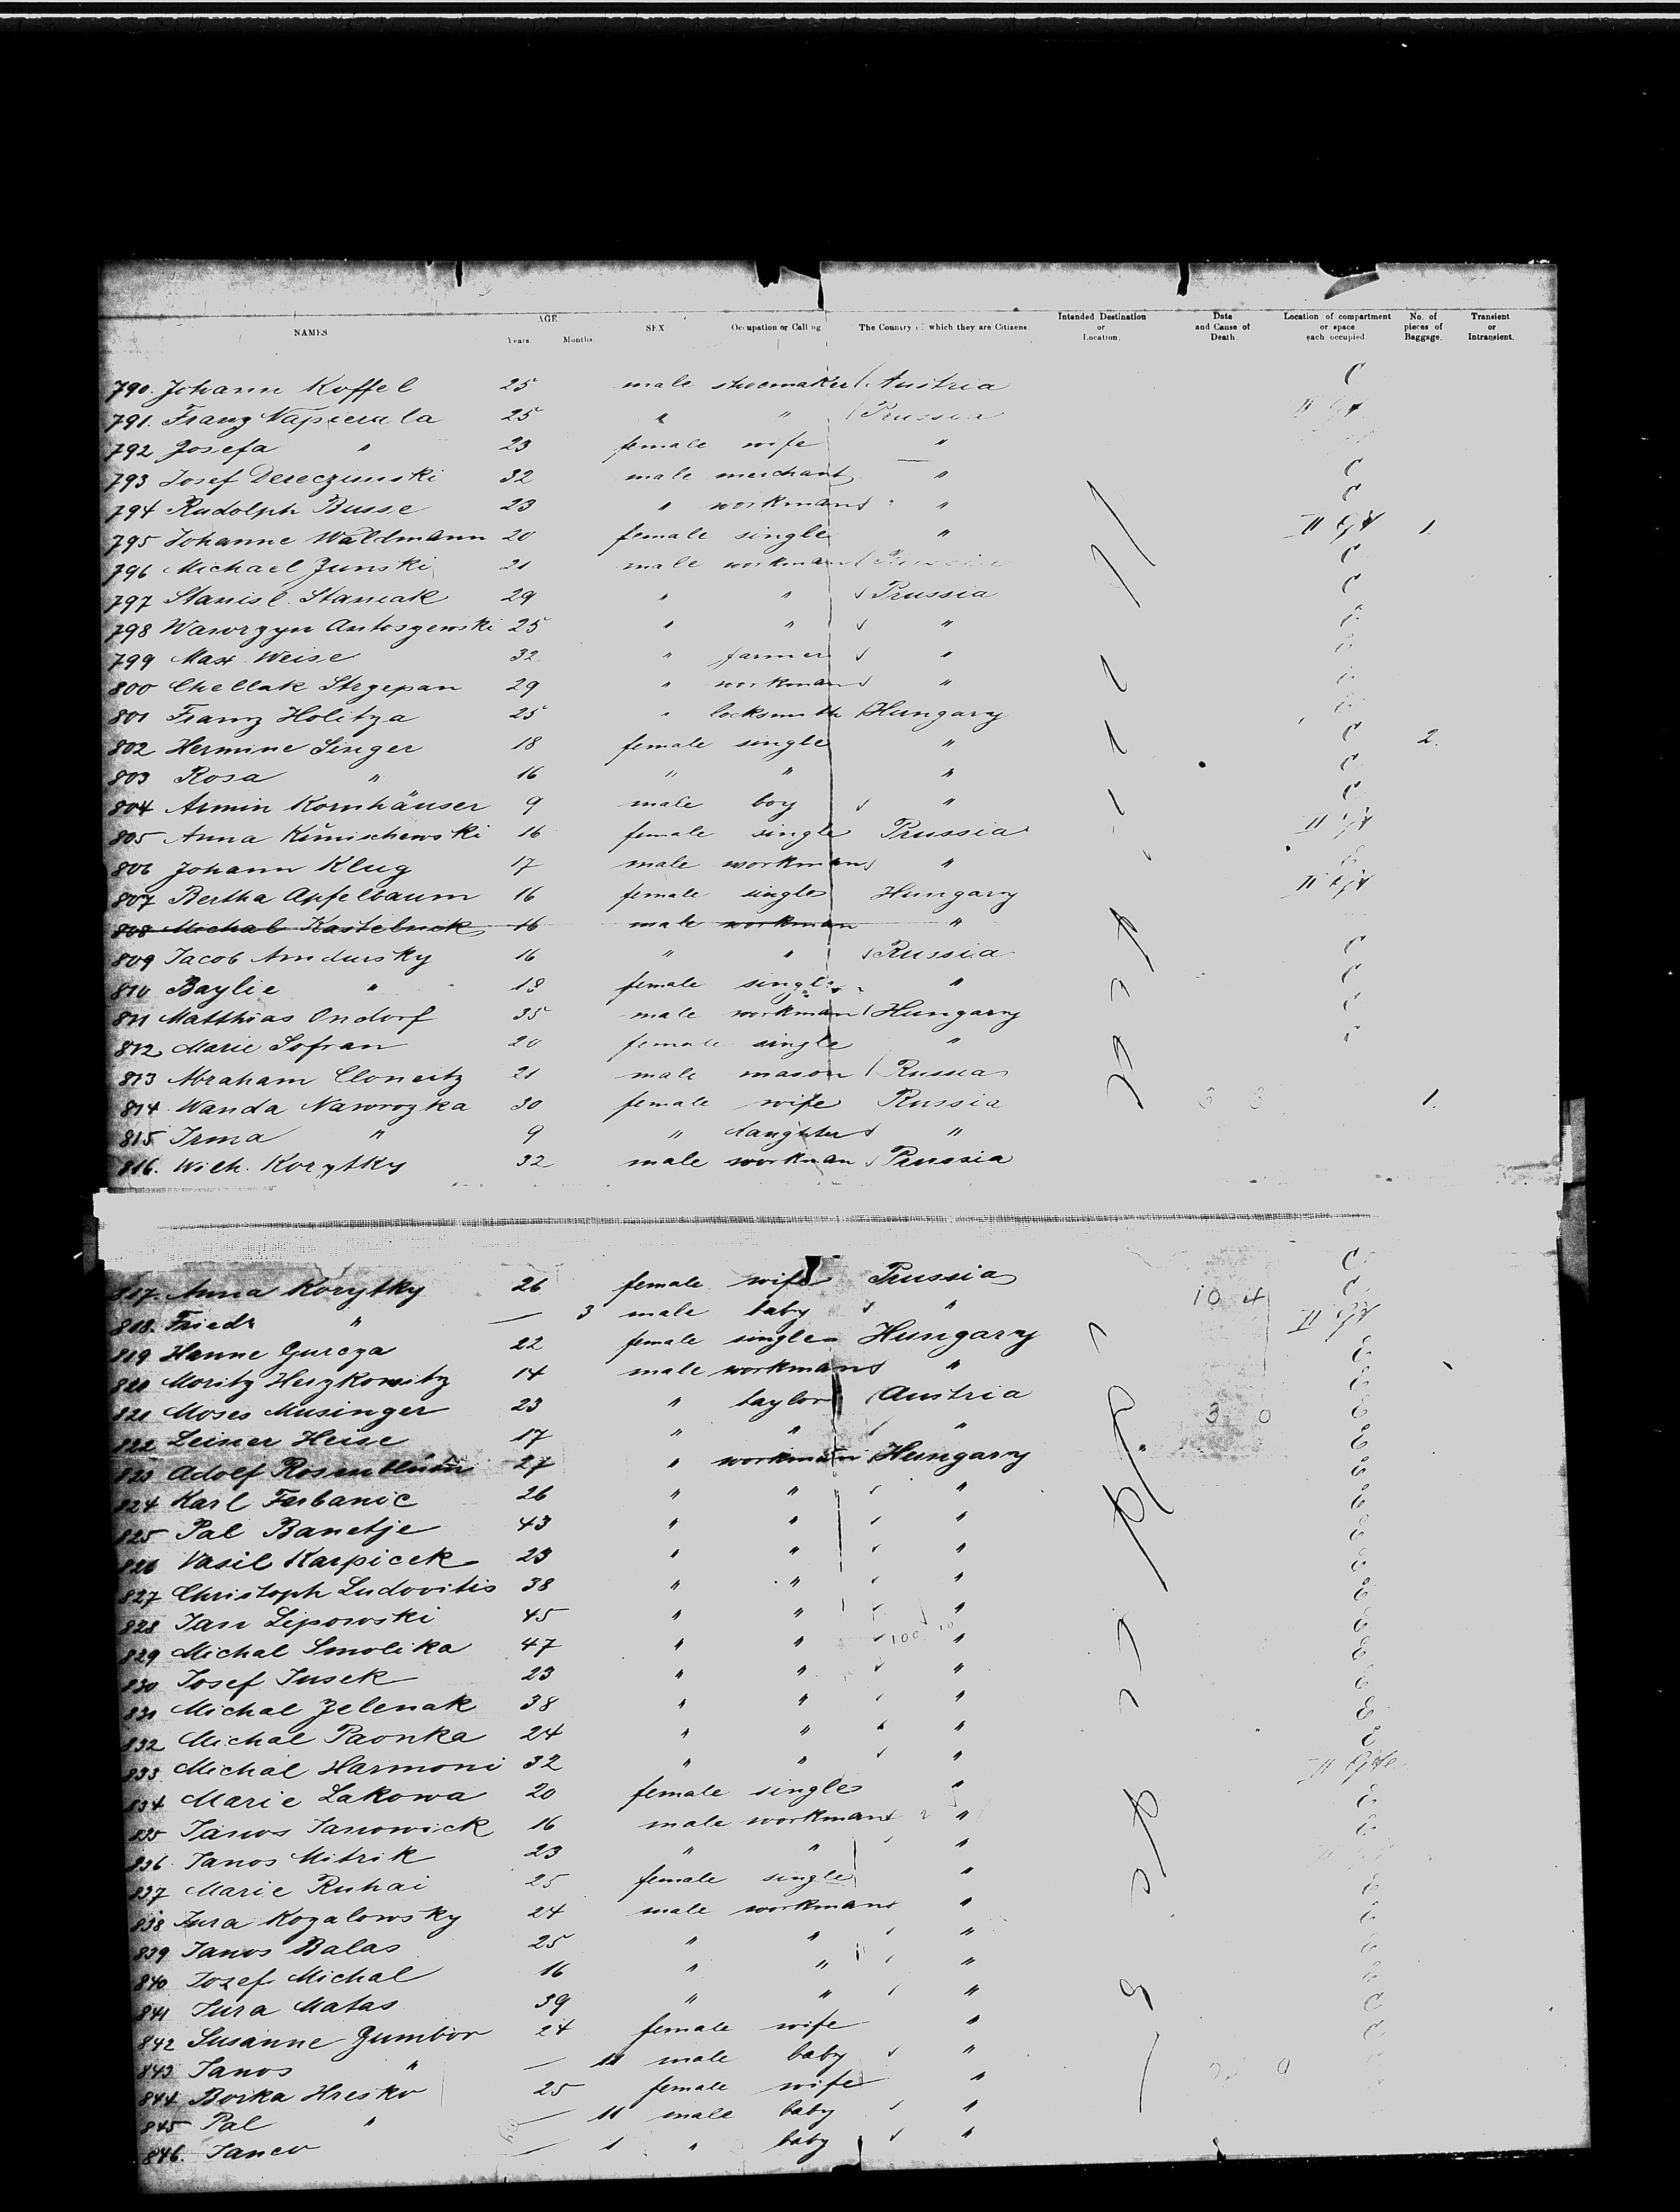 NAMES AGE Years. Months. SEX Occupation or Calling The Country of which they are Citizens. Intended Destination or Location. Date and Cause of Death. Location of compartment or space each occupied. No. of pieces of Baggage. Transient or Intransient.
790. Johann Koffel 25 male shoemaker Austria C
791. Franz Napierala 25 " " Prussia II
792 Josefa " 23 female wife "
793 Josef Dereczinski 32 male merchant " C
794 Rudolph Busse 23 " workman " C
795 Johanne Waldmann 20 female single " II 1.
796 Michael Zunski 21 male workman C
797 Stanisl. Staniak 29 " " Prussia C
798 Wawrzyn Antoszewski 25 " " "
799 Max Weise 32 " farmer "
800 Chellak Strzepan 29 " workman "
801 Franz Holitza 25 " locksmith Hungary
802 Hermine Singer 18 female single " C 2.
803 Rosa " 16 " " " C
804 Armin Kornhäuser 9 male boy " C
805 Anna Kimischewski 16 female single Prussia II
806 Johann Klug 17 male workman "
807 Bertha Apfelbaum 16 female single Hungary II
808 Michal Kastelnick 16 male workman "
809 Jacob Amdursky 16 " " Russia C
810 Baylie " 18 female single " C
811 Matthias Ondorf 35 male workman Hungary C
812 Marie Sofran 20 female single "
813 Abraham Cloneitz 21 male mason Russia
814 Wanda Nawrozka 30 female wife Russia 1.
815 Irma " 9 " daughter "
816. Wilh. Korytky 32 male workman Prussia
817. Anna Korytky 26 female wife Prussia C
818. Friedr " — 3 male baby " 10 4 C
819 Hanne Gurcza 22 female single Hungary II
820 Moritz Herzkowitz 14 male workman " E
821 Moses Musinger 23 " taylor Austria E
822 Leiser Heise 17 " " " 3 0 E
823 Adolf Rosenblüm 27 " workman Hungary E
824 Karl Ferbanic 26 " " " E
825 Pal Banetje 43 " " " E
826 Vasil Karpicek 23 " " " E
827 Christoph Ludovitis 38 " " " E
828 Jan Lipowski 45 " " " E
829 Michal Smolika 47 " " " E
830 Josef Jusek 23 " " " E
831 Michal Zelenak 38 " " " E
832 Michal Paonka 24 " " " E
833 Michal Harmoni 32 " " " E
834 Marie Lakowa 20 female single " II
835 Janos Janowick 16 male workman " E
836 Janos Mitrik 23 " " " E
837 Marie Ruhai 25 female single "
838 Jura Kozalowsky 24 male workman " E
839 Janos Balas 25 " " " E
840 Jozef Michal 16 " " " E
841 Jura Matas 39 " " " E
842 Susanne Gumbor 24 female wife " C
843 Janos " — 11 male baby " C
844 Borka Hresko 25 female wife "
845 Pal " — 11 male baby "
846. Janco — 1 " baby "